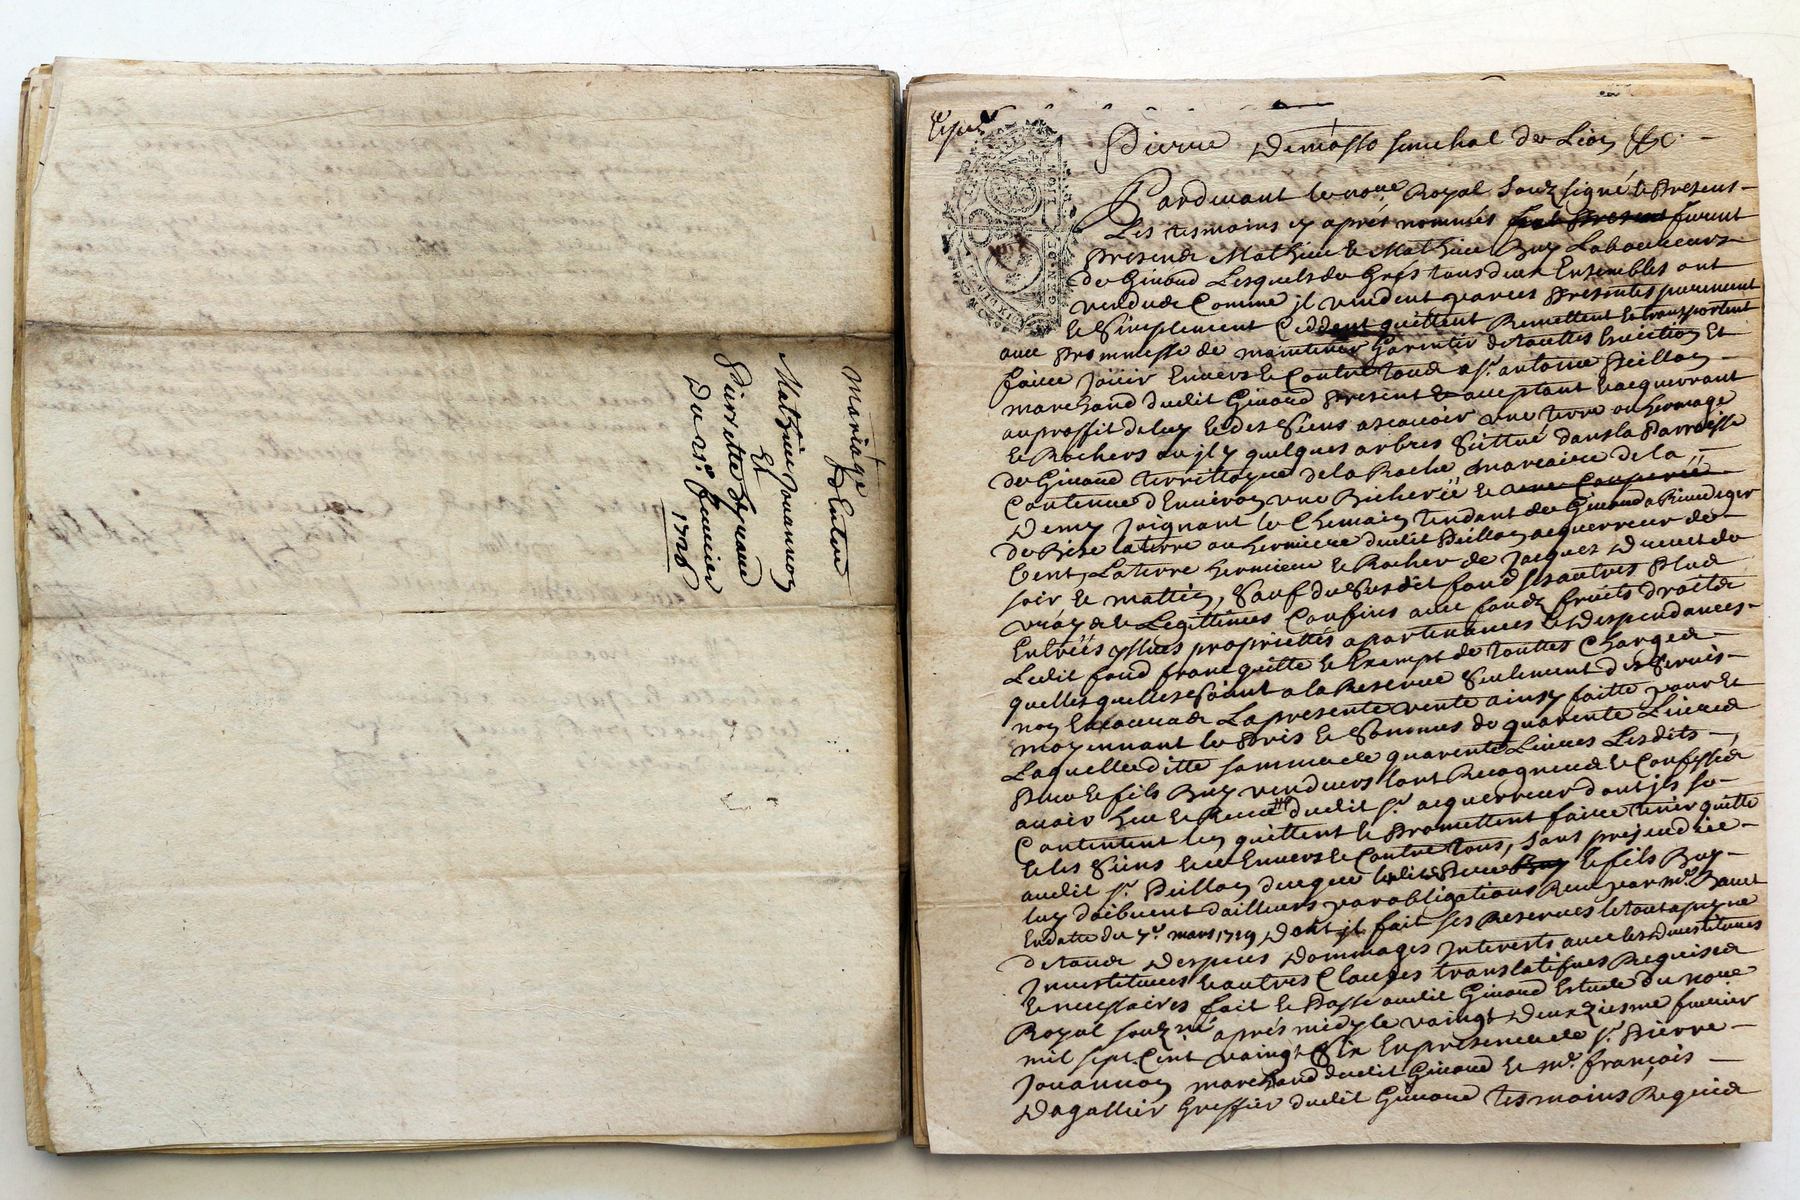 Mariage
d'Entre
Mathieu Jouannon
Et
Pierrette
Du 21e. feurier
1726
Pierre Demasso senechal de Lion &c.
Pardeuant le noue. Royal souz signé & Presens
Les tesmoins cy aprés nommés furent
Presents Mathieu & Mathieu Buy Laboureurs
de Giuord Lesquels de Grés tous deux Ensembles ont
vendu & Comme jl vendent par ces Presentes purement
& Simplement Ceddent quittent Remettent & transportent
auec Prommesse de maintenir Garentir de touttes Euiction Et
faire Joüir Enuers & Contre tous a sr. antoine Peillon
marchand dudit Giuord Present & acceptant & acquerrant
au proffit de luy & des Siens ascauoir vne terre ou hermage
& Rochers ou jl y quelques arbres Sittué dans la Parroisse
de Giuord territoyre de la Roche de la
Contenue d'Enuiron vne Bicherëe &
Demy Joignant le Chemain tendant de Giuord a Riuedegier
de Bize la terre ou hermiere dudit Peillon acquerreur de
Vent, La terre hermiere & Rocher de Jacques de
soir & mattin, Sauf du Susdit fond ses autres Plus
vrays & Legittimes Confins auec fondz fruits droits
Entrées yssües proprietés apartenances & Despendances
Ledit fond franc quitte & Exempt de touttes Charges
quelles quelles Soint a la Reserue Seulement des Seruis
non La presente vente ainsy faitte pour Et
moyennant le Pris & Sommes de quarente Liures
Laquelle ditte somme de quarente Liures Lesdits
Pere & fils Buy vendeurs sont Recogneus & Confessés
auoir heu & Receu dudit sr. acquerreur dont jls se
Contentent len quittent & Promettent faire tenir quitte
& les Siens & Enuers & Contre tous, sans prejudice
audit sr. Peillon de ce que lesdits Pere & fils Buy
luy doibuent d'ailleurs par obligations Receu par me.
En datte du 7e. mars 1719, Dont jl fait ses Reserues le tout a peyne
de tous Despens Dommages Interests auec les deuestitures
Inuestitures & autres Clauses translatifues Requises
& necessaires fait & Passé audit Giuord Estude du noue.
Royal souz né apres midy le vaingt Deuxziesme feurier
mil sept Cent vaingt Six En presence de sr. Pierre
Jouannon marchand dudit Giuord & me. françois
Dagallier Greffier dudit Giuord tesmoins Requis